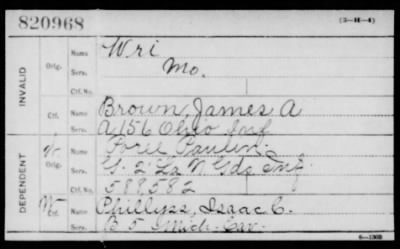 820968
(3-H-4)
INVALID
Orig.
Name
Wri
Serv.
Mo.
Ctf.No.
Ctf.
Name
Brown, James A
Serv.
A 156 Ohio Inf
DEPENDENT
W
Orig.
Name
Poree Paulin
Serv.
G. 2' La N Gds Inf.
Ctf.No.
589582
W
Ctf.
Name
Phillips, Isaac C.
Serv.
B 5 Mich. Cav.